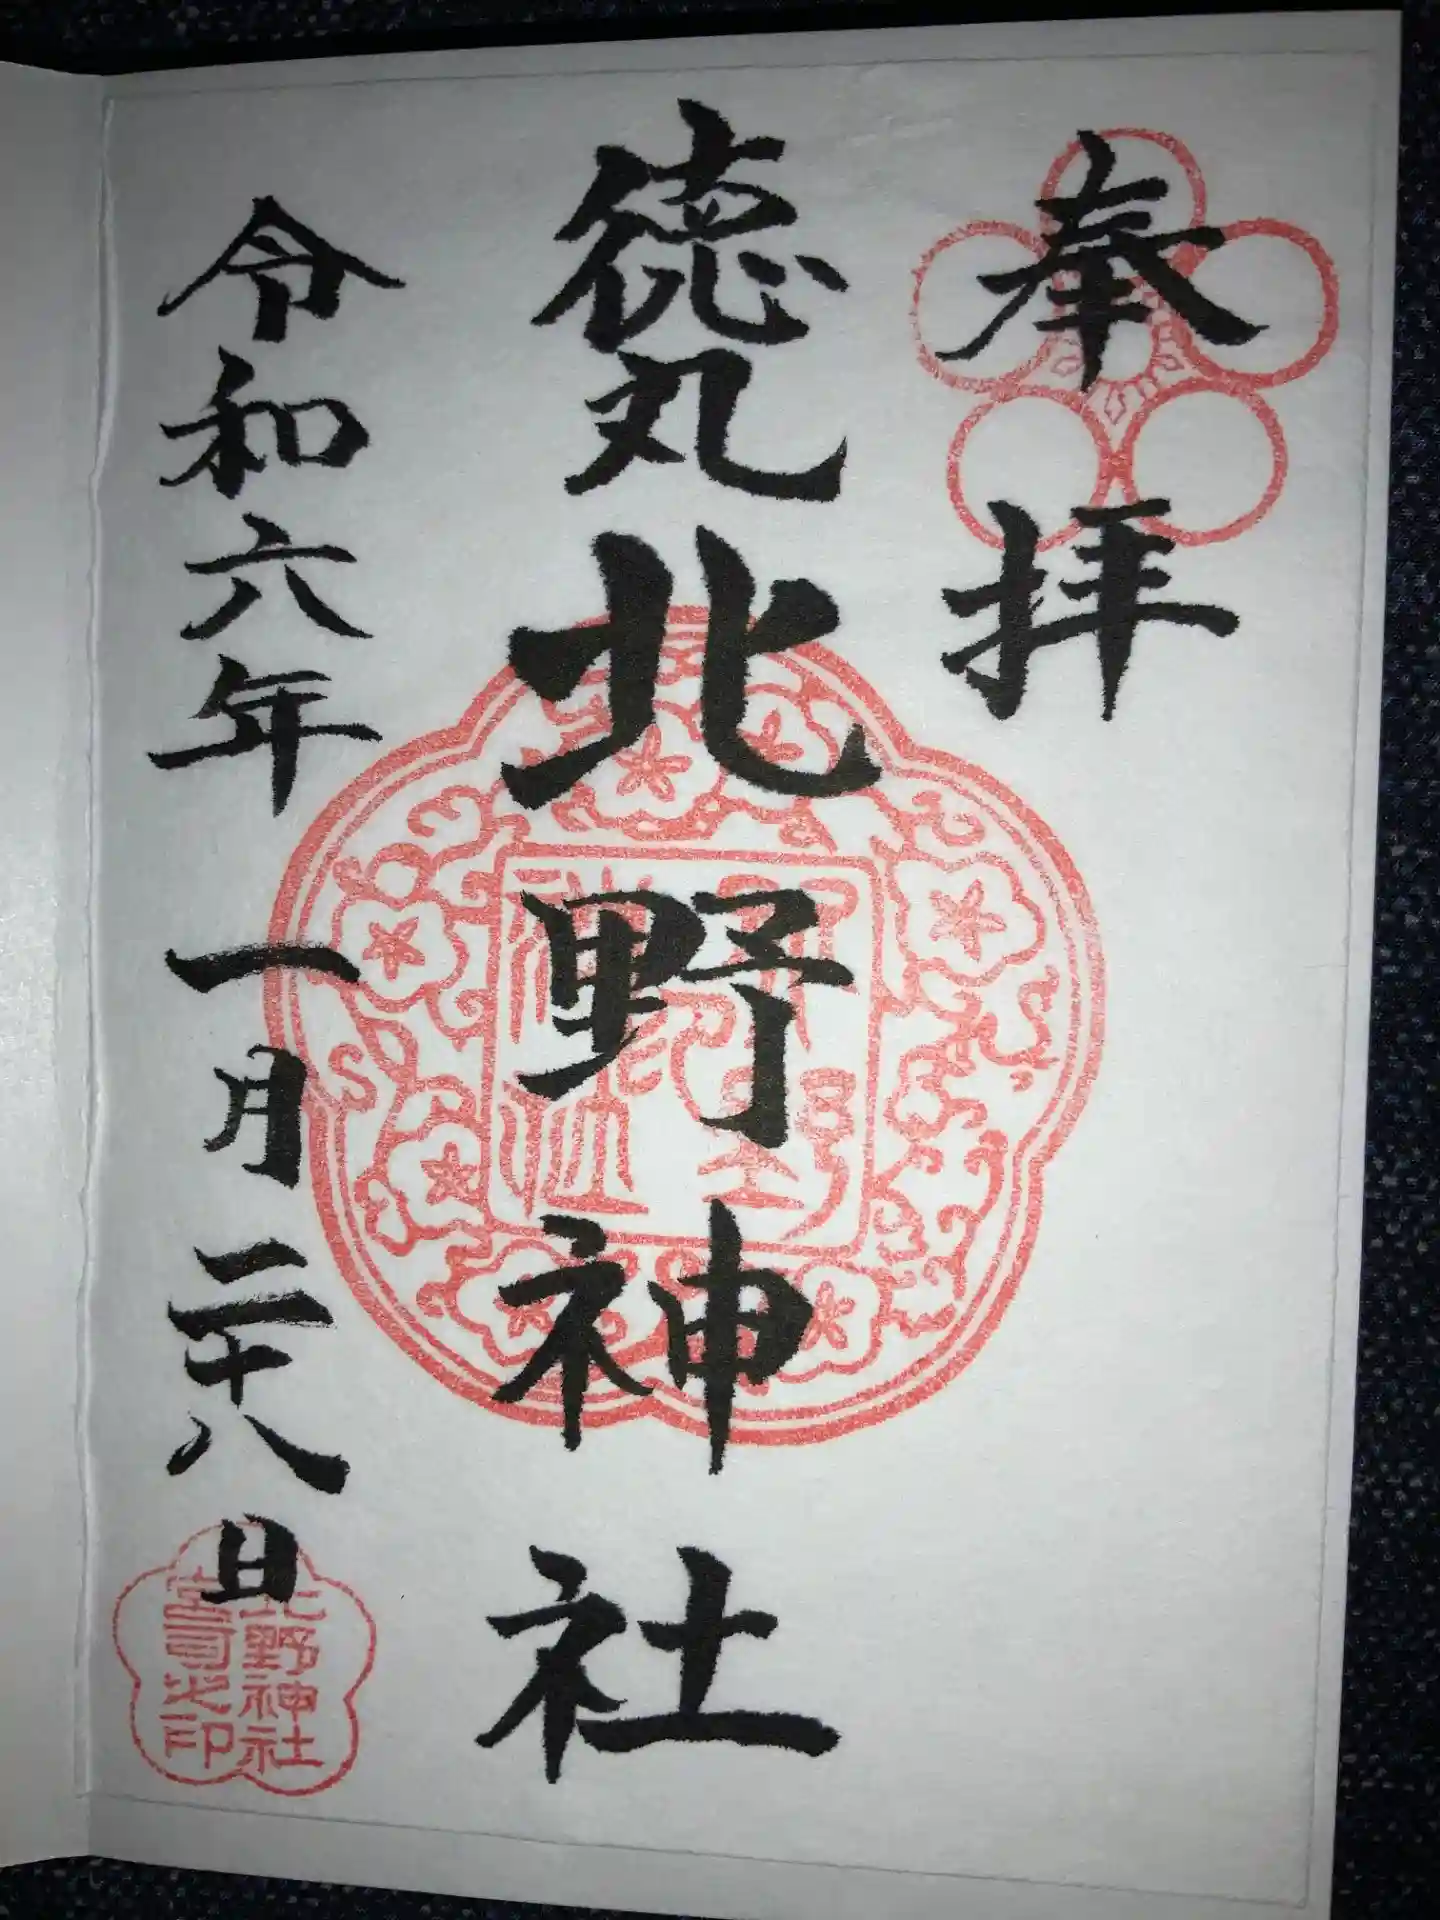 奉拝
徳丸北野神社
令和六年一月二十八日
北野神社
宮司之印